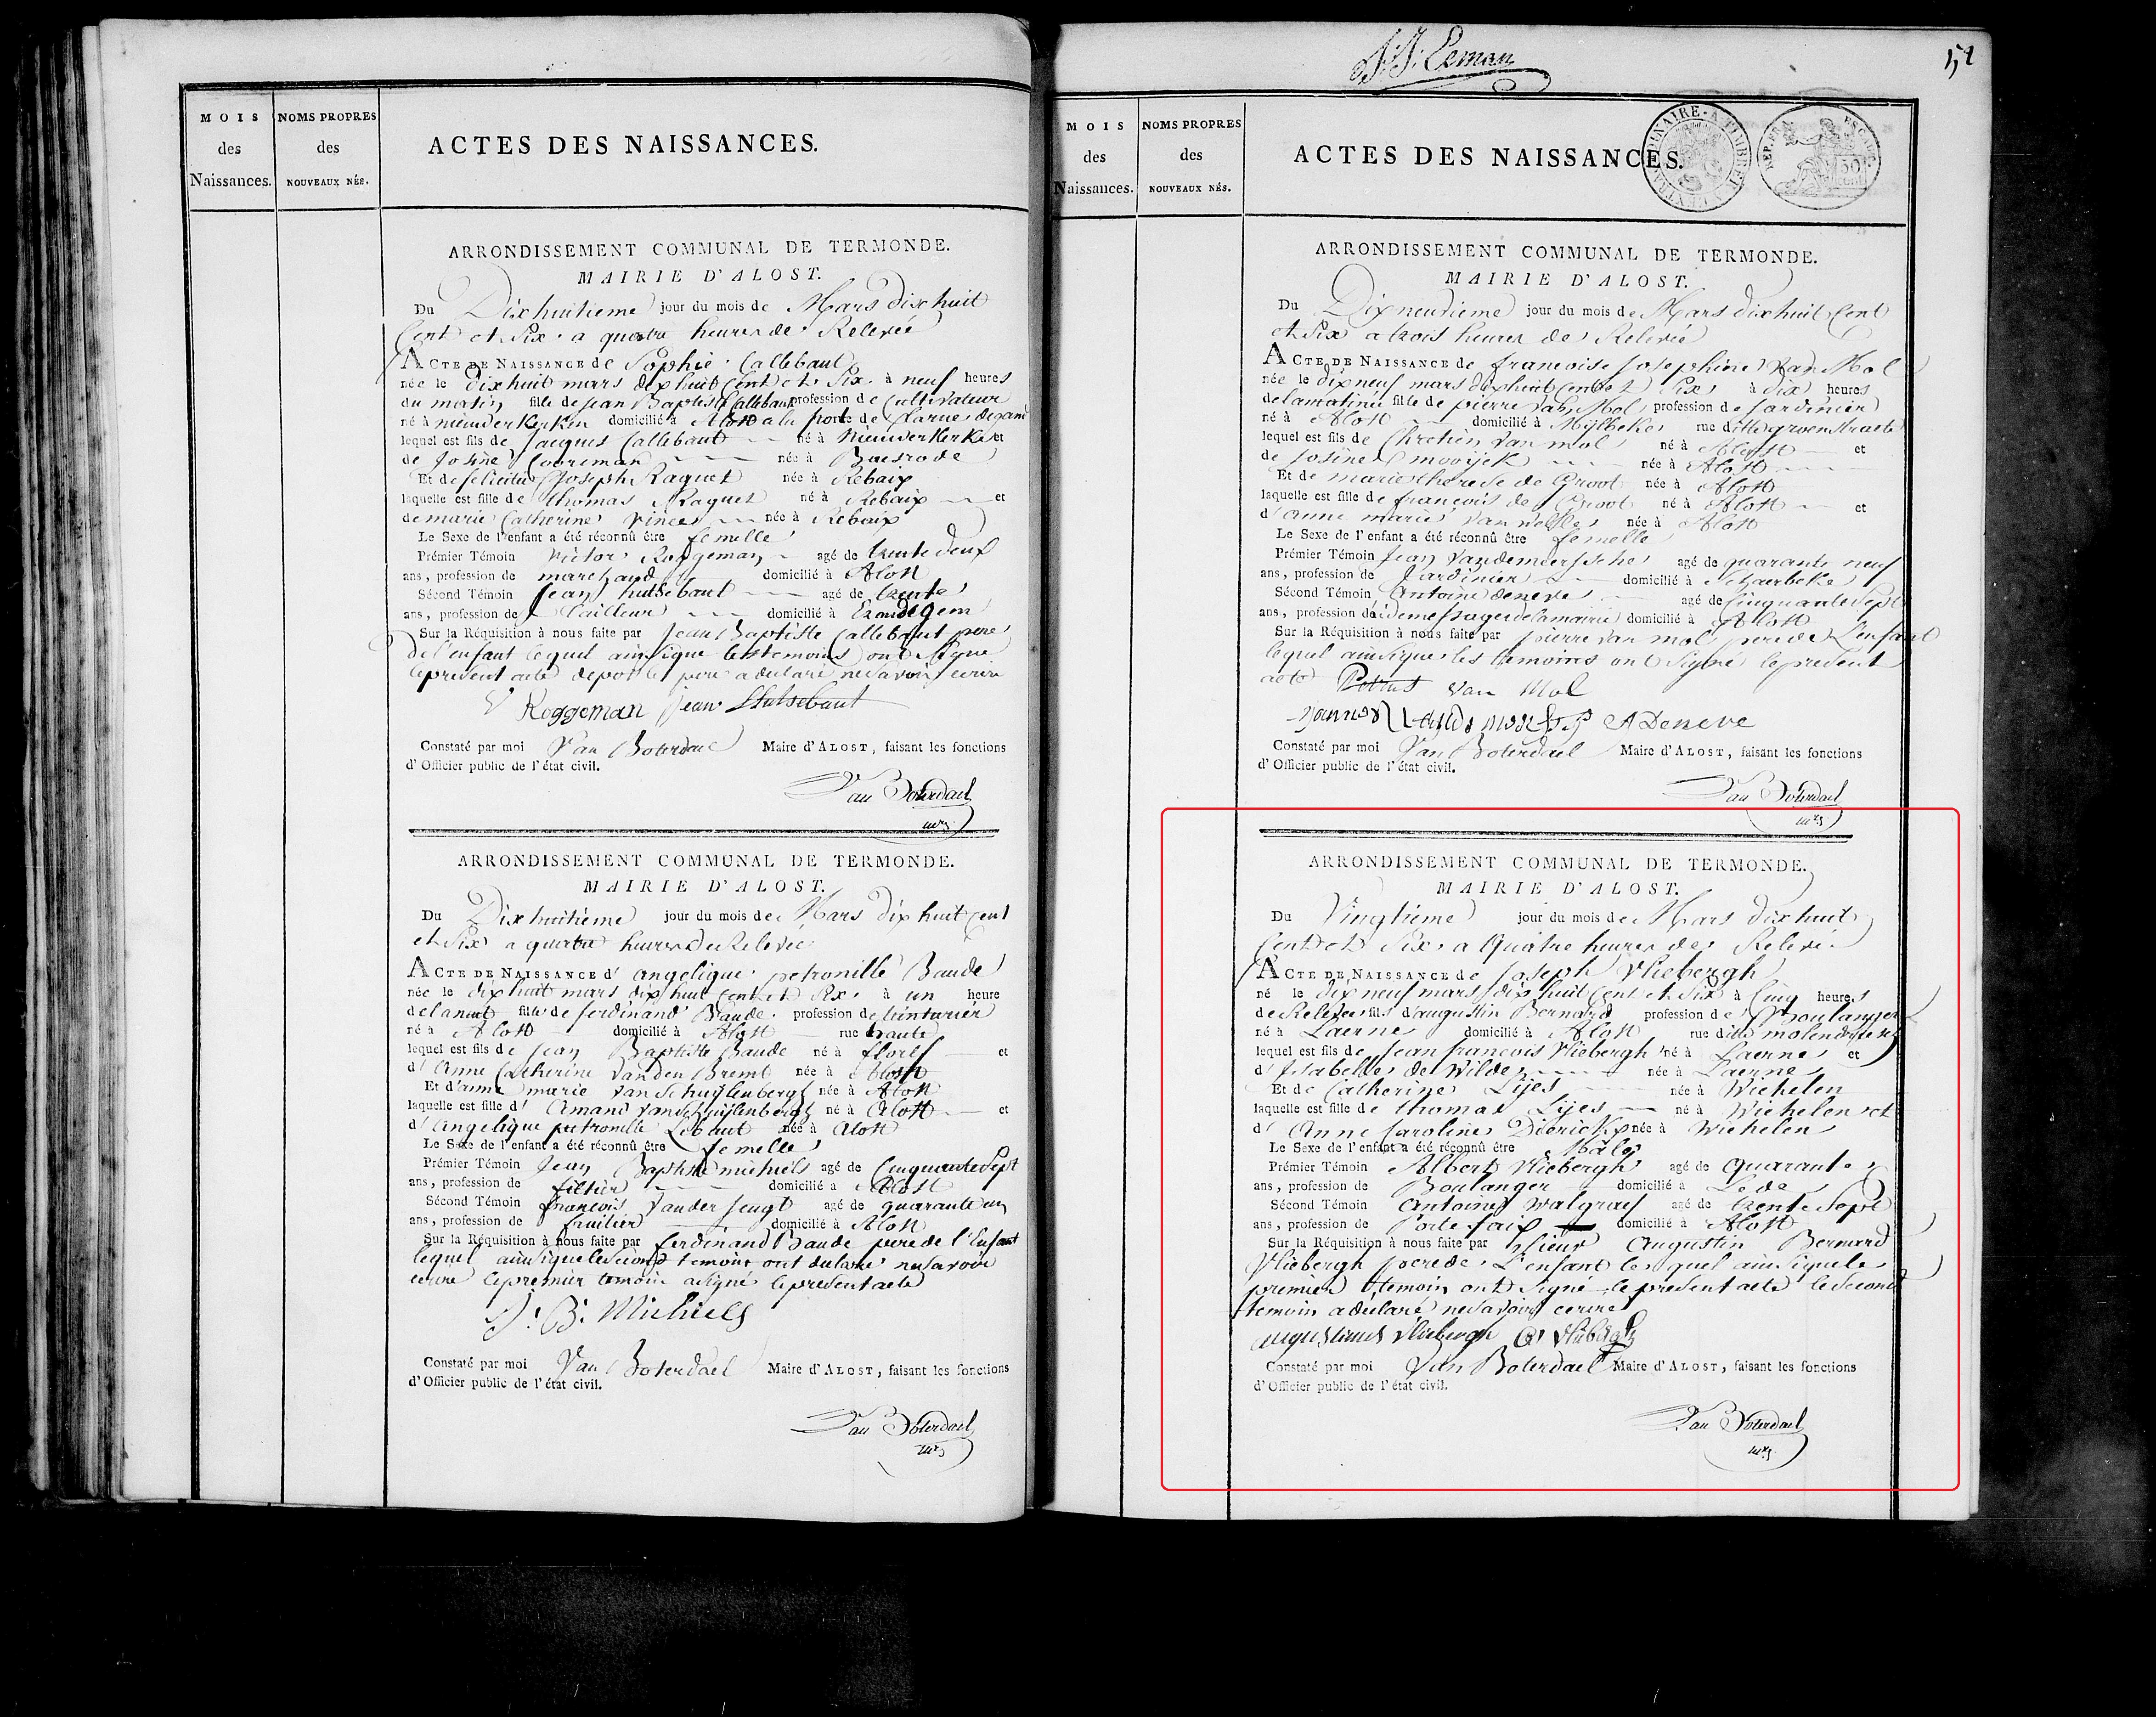 J. J. Eeman
51
MOIS
des
Naissances.
NOMS PROPRES
des
NOUVEAUX NÉS.
ACTES DES NAISSANCES.
ARRONDISSEMENT COMMUNAL DE TERMONDE.
MAIRIE D'ALOST.
Du Dix huitieme jour du mois de Mars dix huit
Cent et Six a quatre heures de Relevée
ACTE DE NAISSANCE de Sophie Callebaut
née le dix huit mars dix huit Cent et Six à neuf heures
du matin fille de Jean Baptiste Callebaut profession de Cultivateur
né à nieuwerkerken domicilié à Alost a la porte de
lequel est fils de Jacques Callebaut né à Nieuwerkerken et
de Josine Cooreman née à Baesrode
Et de felicitée Joseph Raquet née à Rebaix
laquelle est fille de thomas Raquet né à Rebaix et
de marie Catherine née à Rebaix
Le Sexe de l'enfant a été réconnû être femelle
Prémier Témoin Victor Roggeman agé de trente deux
ans, profession de marchand domicilié à Alost
Sécond Témoin Jean hutsebaut agé de trente
ans, profession de tailleur domicilié à Erondegem
Sur la Réquisition à nous faite par Jean Baptiste Callebaut pere
de l'enfant lequel ainsi que les temoins ont signé
le present acte le pere a declaré ne savoir ecrire
V Roggeman Jean Hutsebaut
Constaté par moi Van Boterdael Maire d'ALOST, faisant les fonctions
d'Officier public de l'état civil.
Van Boterdael
ARRONDISSEMENT COMMUNAL DE TERMONDE.
MAIRIE D'ALOST.
Du Dix huitieme jour du mois de Mars dix huit Cent
et Six a quatre heures de Relevée
ACTE DE NAISSANCE d'angelique petronille Baude
née le dix huit mars dix huit Cent et Six à un heure
de la nuit fille de ferdinand Baude profession de teinturier
né à Alost domicilié à Alost rue haute
lequel est fils de Jean Baptiste Baude né à et
d'Anne Catherine Vanden Bremt née à Alost
Et d'anne marie Van Schuylenbergh née à Alost
laquelle est fille d'Amand Van Schuylenbergh né à Alost et
d'Angelique petronille Lebaut née à Alost
Le Sexe de l'enfant a été réconnû être femelle
Prémier Témoin Jean Baptiste michiels agé de Cinquante Sept
ans, profession de filtier domicilié à Alost
Sécond Témoin francois Vander Jeugt agé de quarante un
ans, profession de domicilié à Alost
Sur la Réquisition à nous faite par ferdinand Baude pere de l'Enfant
lequel ainsi que le second temoin ont declaré ne savoir
ecrire le premier temoin a signé le present acte
J. B. Michiels
Constaté par moi Van Boterdael Maire d'ALOST, faisant les fonctions
d'Officier public de l'état civil.
Van Boterdael
MOIS
des
Naissances.
NOMS PROPRES
des
NOUVEAUX NÉS.
ACTES DES NAISSANCES.
ARRONDISSEMENT COMMUNAL DE TERMONDE.
MAIRIE D'ALOST.
Du Dix neuvieme jour du mois de Mars dix huit Cent
et Six a trois heures de Relevée
ACTE DE NAISSANCE de francoise Josephine Van Mol
née le dix neuf mars dix huit Cent et Six à dix heures
de la matinée fille de pierre Van Mol profession de Jardinier
né à Alost domicilié à Mijlbeke rue dite groenstraete
lequel est fils de Chretien Van mol né à Alost et
de Josine née à Alost
Et de marie therese de Groot née à Alost
laquelle est fille de francois de Groot né à Alost et
d'anne marie née à Alost
Le Sexe de l'enfant a été réconnû être femelle
Prémier Témoin Jean Vandemeerssche agé de quarante neuf
ans, profession de Jardinier domicilié à Schaerbeke
Sécond Témoin Antoine deneve agé de Cinquante Sept
ans, profession de messager de la mairie domicilié à Alost
Sur la Réquisition à nous faite par pierre Van mol pere de L'enfant
lequel ainsi que les temoins ont signé le present
acte Petrus Van Mol
A Deneve
Constaté par moi Van Boterdael Maire d'ALOST, faisant les fonctions
d'Officier public de l'état civil.
Van Boterdael
ARRONDISSEMENT COMMUNAL DE TERMONDE.
MAIRIE D'ALOST.
Du Vingtieme jour du mois de Mars dix huit
Cent et Six a Quatre heures de Relevée
ACTE DE NAISSANCE de Joseph Vliebergh
né le dix neuf mars dix huit Cent et Six à Cinq heures
de Relevée fils d'augustin Bernard profession de Boulanger
né à Laerne domicilié à Alost rue dite
lequel est fils de Jean francois Vliebergh né à Laerne et
d'Isabelle de Wilde née à Laerne
Et de Catherine Lijes née à Wichelen
laquelle est fille de thomas Lijes né à Wichelen et
d'Anne Caroline Dierickx née à Wichelen
Le Sexe de l'enfant a été réconnû être Mâle
Prémier Témoin Albert Vliebergh agé de quarante
ans, profession de Boulanger domicilié à Lede
Sécond Témoin Antoine Walgraef agé de trente Sept
ans, profession de Porte faix domicilié à Alost
Sur la Réquisition à nous faite par Sieur Augustin Bernard
Vliebergh pere de L'enfant lequel ainsi que le
premier temoin ont signé le present acte le second
temoin a declaré ne savoir ecrire
augustinus Vliebergh A Vliebergh
Constaté par moi Van Boterdael Maire d'ALOST, faisant les fonctions
d'Officier public de l'état civil.
Van Boterdael